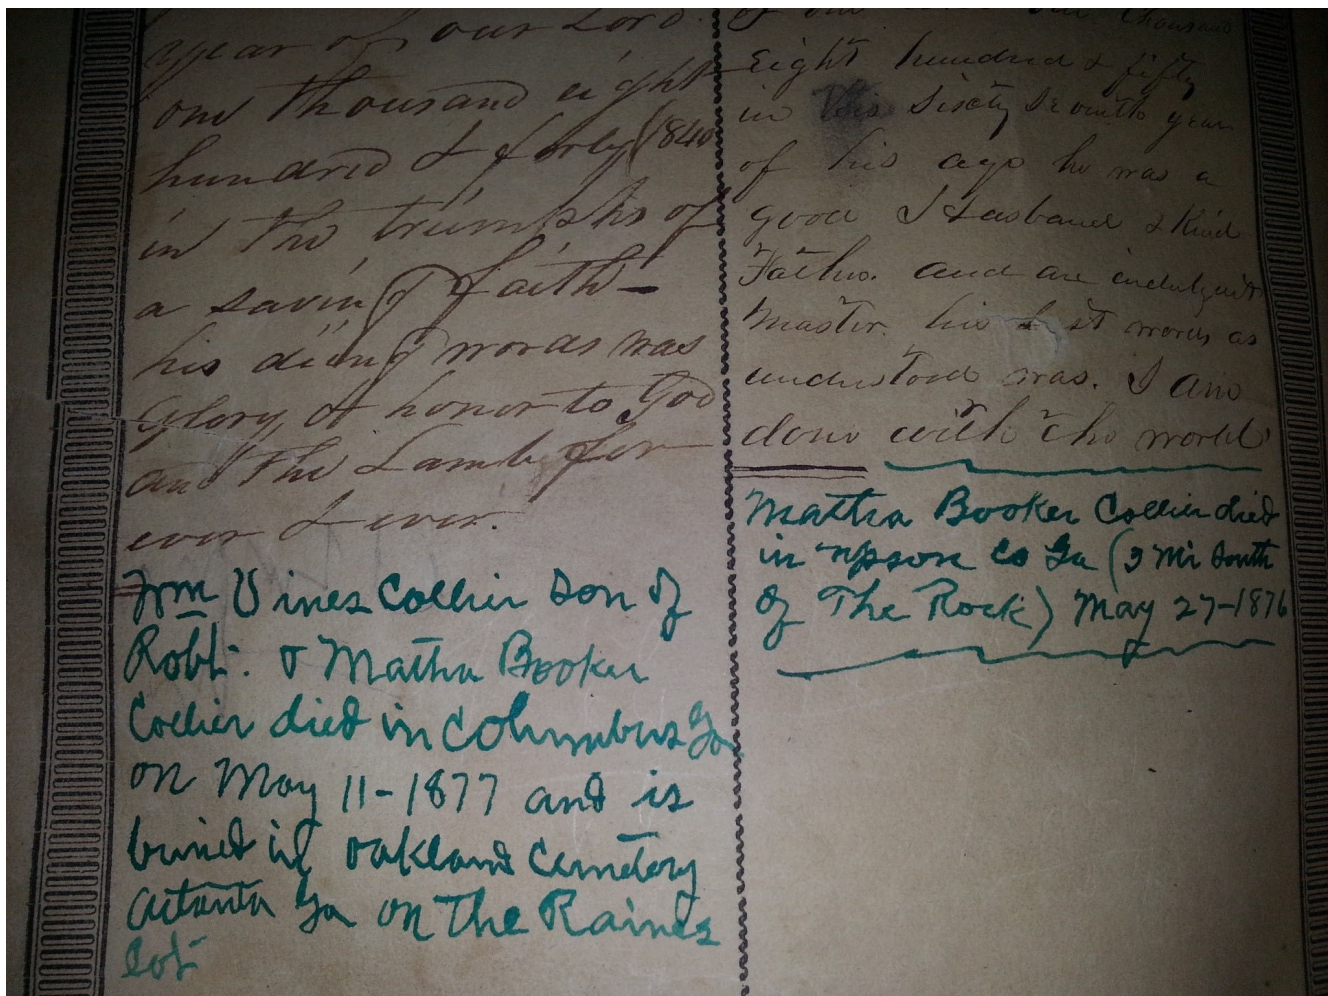 year of our Lord
one thousand eight
hundred & forty (1840
in the triumphs of
a saving faith –
his diing words was
Glory & honor to God
and the Lamb for
ever & ever.
Wm Vines Collier son of
Robt. & Martha Booker
Collier died in Columbus Ga
on May 11-1877 and is
buried in Oakland Cemetery
Atlanta Ga on the Raines
lot
of our thousand
Eight hundred & fifty
in this Sixty Seventh year
of his age he was a
good Husband & Kind
Father. and an indulgent
Master. his last words as
understood was. I am
done with the world
Martha Booker Collier died
in Upson Co Ga (3 Mi South
of The Rock) May 27-1876